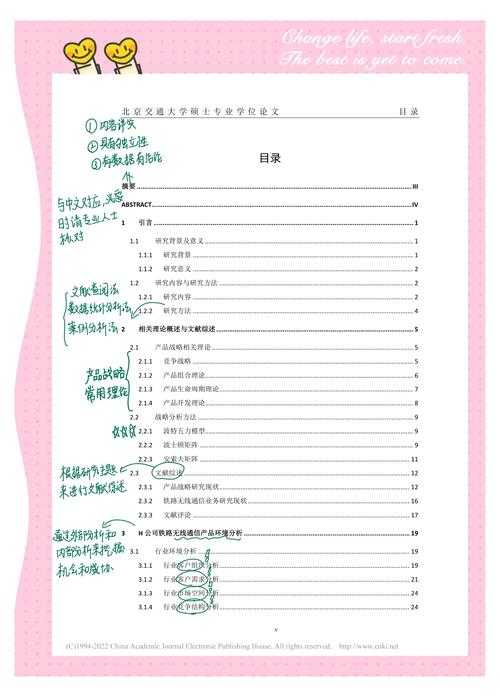 Change life, start fresh
The best is yet to come
北京交通大学硕士专业学位论文 目录
①内容详实
②具有独立性
③有数据有结论
目录
摘要 III
与中文对应,必要时请专业人士核对
ABSTRACT IV
1 引言 1
1.1 研究背景及意义 1
1.1.1 研究背景 1
1.1.2 研究意义 2
1.2 研究内容与研究方法 2
文献查阅法
数据统计分析法
案例分析法
1.2.1 研究内容 2
1.2.2 研究方法 4
2 相关理论概述与文献综述 5
2.1 产品战略相关理论 5
产品战略
常用理论
2.1.1 竞争战略 5
2.1.2 产品组合理论 6
2.1.3 产品生命周期理论 7
2.1.4 产品开发理论 8
2.2 战略分析方法 9
2.2.1 波特五力模型 9
2.2.2 波士顿矩阵 9
2.2.3 安索夫矩阵 11
根据研究主题
来进行文献综述
2.3 文献综述 12
2.3.1 产品战略研究现状 12
2.3.2 铁路无线通信业务研究现状 16
2.3.3 文献评论 17
通过外部分析和
内部分析来挖掘
机会和威胁
3 H 公司铁路无线通信产品环境分析 19
3.1 行业环境分析 19
3.1.1 行业客户组织分析 19
3.1.2 行业客户需求分析 21
3.1.3 行业市场空间分析 24
3.1.4 行业竞争结构分析 24
V
(C)1994-2022 China Academic Journal Electronic Publishing House. All rights reserved. http://www.cnki.net